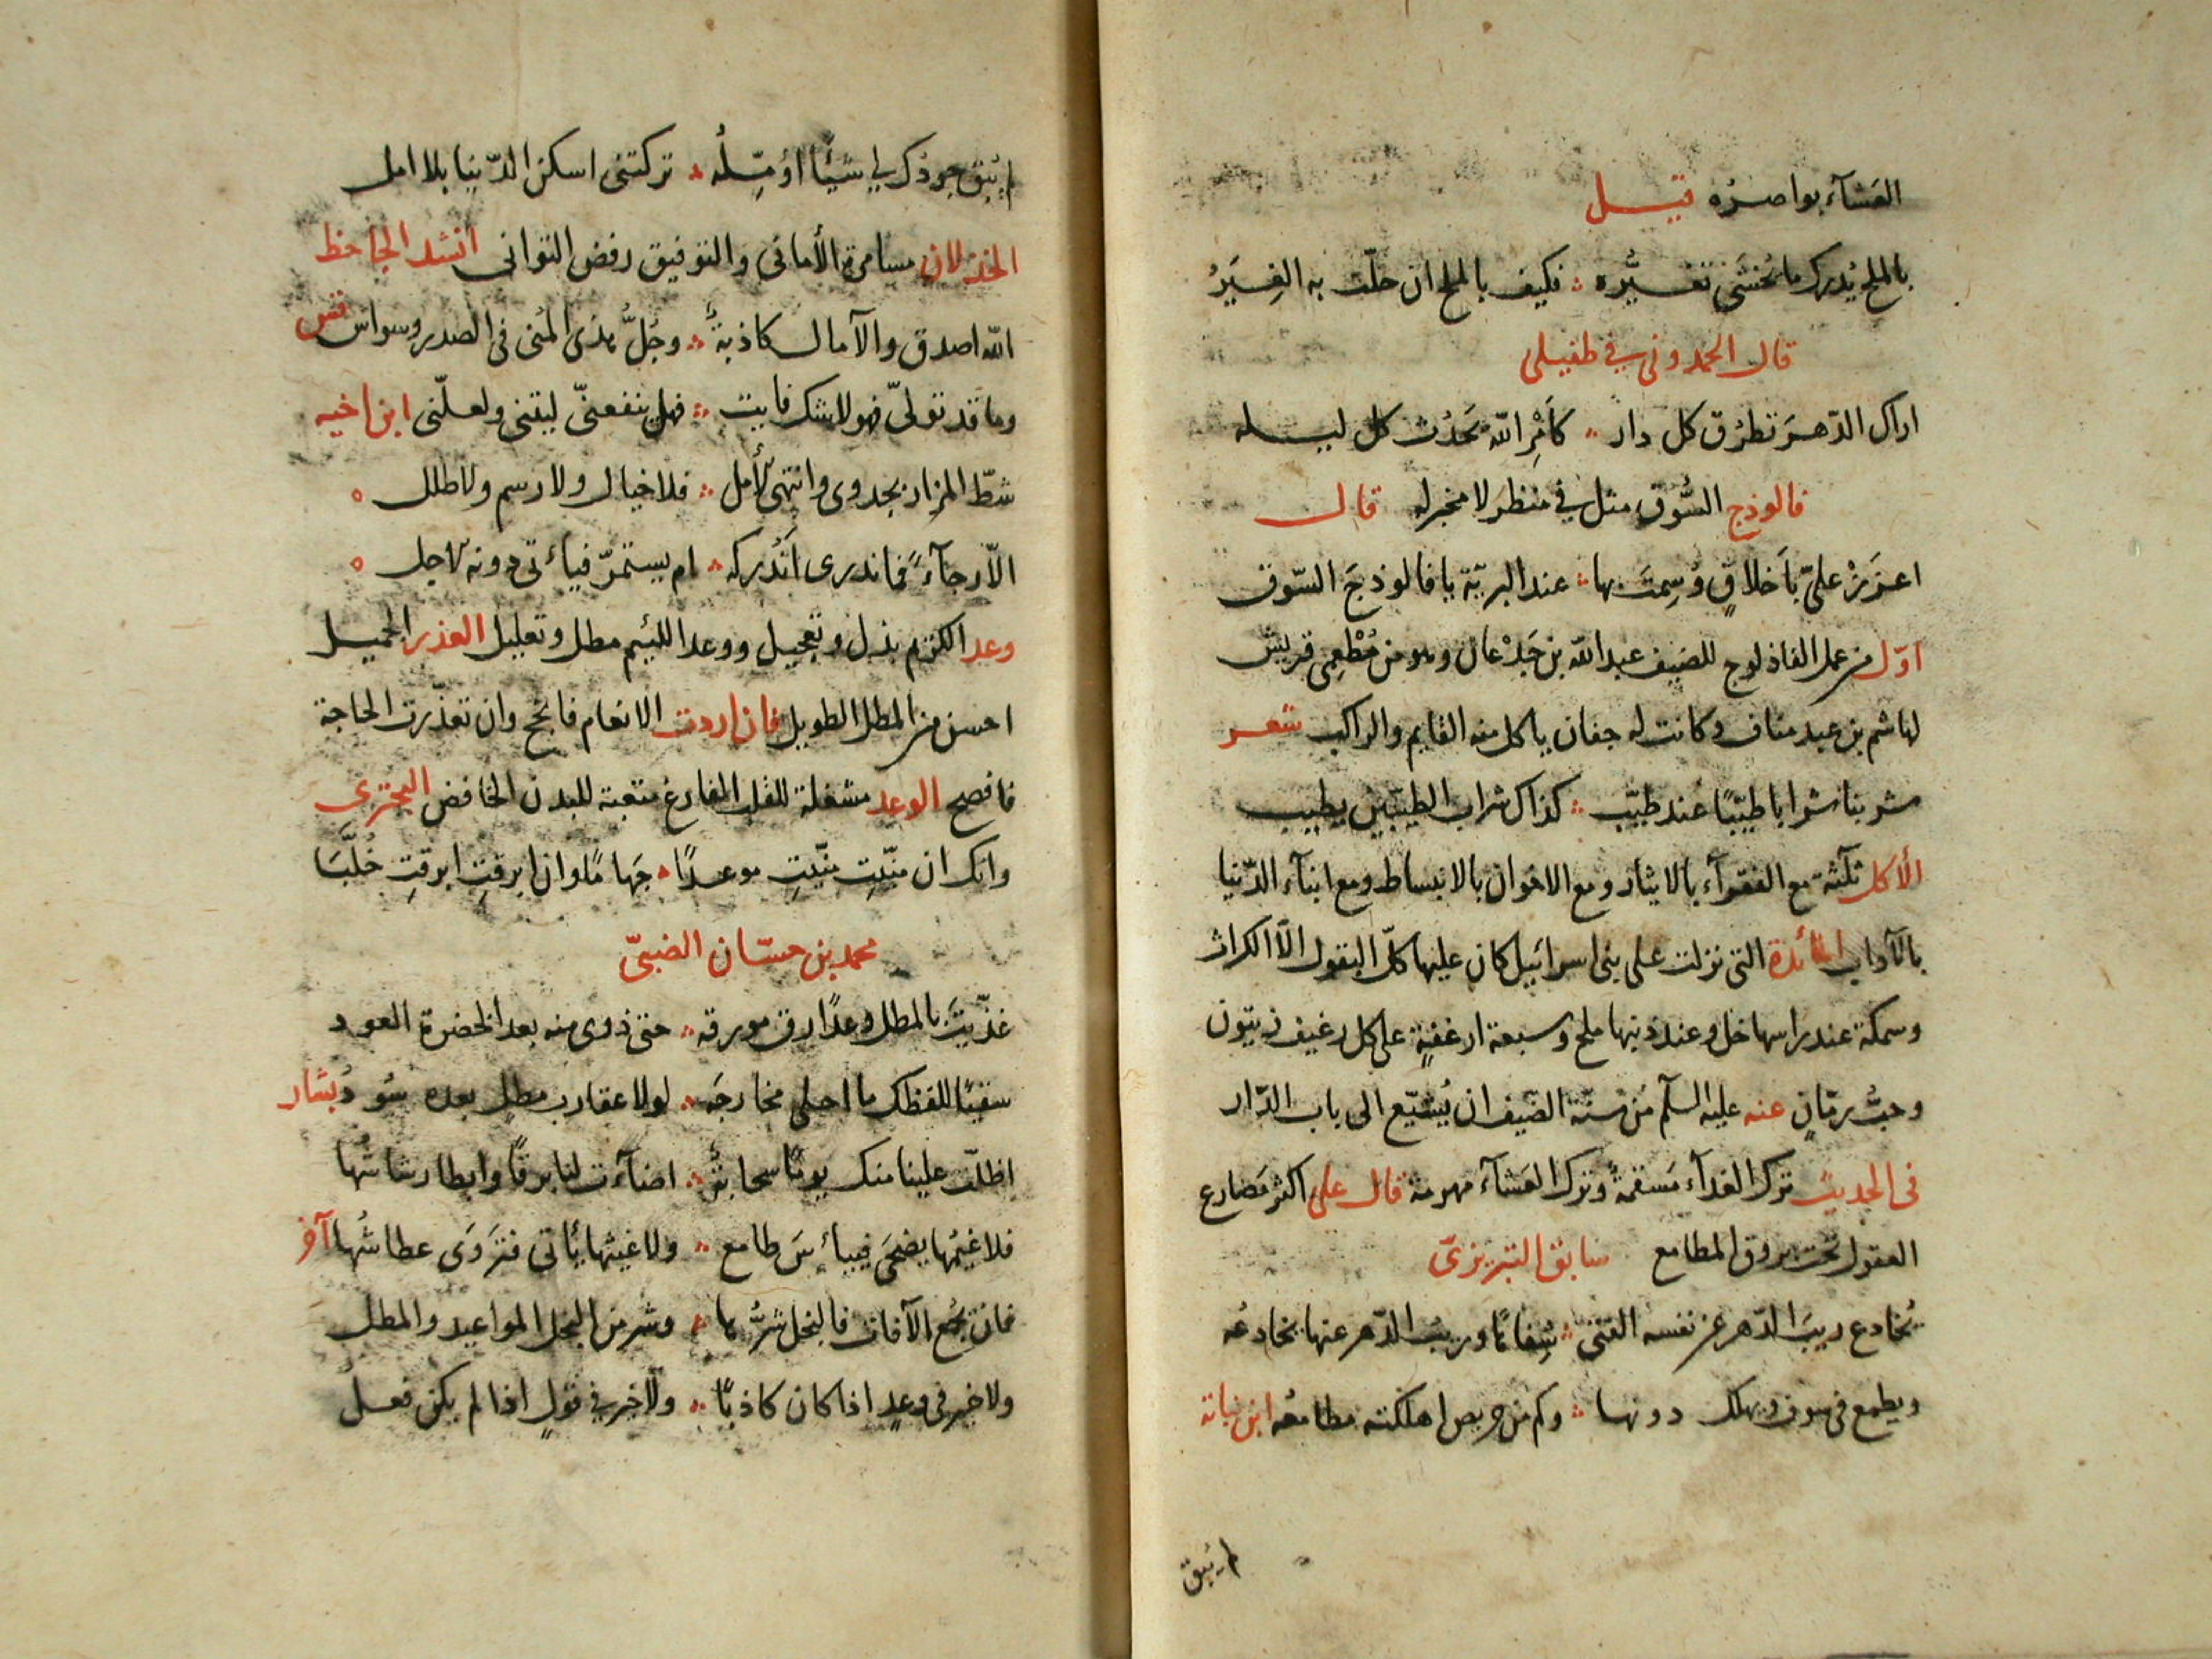 العَشآء بواصرُه قيـــل
بالملح يُدرك ما يُخشَى تغــيُّره ؞ فكيف بالملح ان حلّت به الغِيَرُ
قال الحمدونى فى طفيلى
اراك الدّهــرَ تطرُق كل دار ؞ كأمْرِ اللّه يَحدُث كل ليـــله
فالوذج السُّوق مثل فى منظر لا مخبر له قال
اعزَزْ علىّ بأخلاقٍ وُسِمتَ بها ؞ عند البريّة يا فالوذجَ السّوق
اوّل من عمل الفاذلوج للضيف عبد اللّه بن جَدْعان وهو من مُطْعِمى قريش
لهاشم بن عبد مناف وكانت له جفان ياكل منه القايم والراكب شعــر
شربنا شرابا طيّبًا عند طيّب ؞ كذاك شراب الطيّبين يطيب
الأكل ثلثة مع الفقرآء بالايثار ومع الاخوان بالانبساط ومع ابنآء الدّنيا
بالآداب المائدة التى نزلت على بنى اسرائيل كان عليها كلّ البقول الّا الكراث
وسمكة عند راسها خل وعند ذنبها ملح وسبعة ارغفةٍ على كل رغيف زيتون
وحبُّ رمّانٍ عنه عليه السلم مِن سنّة الضيف ان يُشيّع الى باب الدّار
فى الحديث ترك الغدآء مَسقمةٌ وترك العَشآء مهرمة قال على اكثر مَصارع
العقول تحت بروق المطامع سابق التبريزىّ
يُخادع ريبَ الدّهر عن نفسه الفتى ؞ سِفاهًا وريبُ الدّهر عنها يخادعُه
ويطمع فى سوف ويهلك دونها ؞ وكم من حريص اهلكته مطامعُه ابن نباتة
لم يُبق
لم يُبق جودُك لى شيئًا اؤمِّـلُه ؞ تركتنى اسكن الدّنيا بلا امل
الخذلان مسامرة الأمانى والتوفيق رفض التوانى انشد الجاحظ
اللّه اصدق والآمال كاذبةٌ ؞ وجُلُّ هذى المُنى فى الصدر وسواس قس
وما قد تولّى فهو لا شك فايت ؞ فهل ينفعنّى ليتنى ولعلّنى ابن اخيه
شطّ المزار بجدوى وانتهى الأمل ؞ فلا خيال ولا رسم ولا طلل
الّا رجآءً فما ندرى أندركه ؞ ام يستمرّ فيأتى دونه الاجل
وعد الكريم بذل وتعجيل ووعد اللئيم مطل وتعليل العذر الجميــل
احسن من المطل الطويل فان اردت الانعام فانجح وان تعذّرت الحاجة
فافصح الوعد مشغلة للقلب الفارغ متعبة للبدن الخافض البحترى
وانك ان منّيتِ منّيتِ موعــدًا ؞ جَهامًا وان ابرقتِ ابرقتِ خُلَّبَا
محمد بن حسّان الضبىّ
غذّيتَ بالمطل وعدًا رق مورقه ؞ حتى ذوى منه بعد الخضرة العود
سقيًا للفظك ما احلى مخارجَه ؞ لولا عقارب مطل بعده سُود بشار
اظلّت علينا منك يومًا سحابةٌ ؞ اضآءت لنا برقًا وابطا رشاشُها
فلا غيمُها يضحَى فييأسَ طامع ؞ ولا غيثها يأتى فتَروَى عطاشُها آخر
فان تجمُع الآفات فالبخل شرُّها ؞ وشر من البخل المواعيد والمطل
ولا خير فى وعدٍ اذا كان كاذبًا ؞ ولا خير فى قولٍ اذا لم يكن فعــلُ